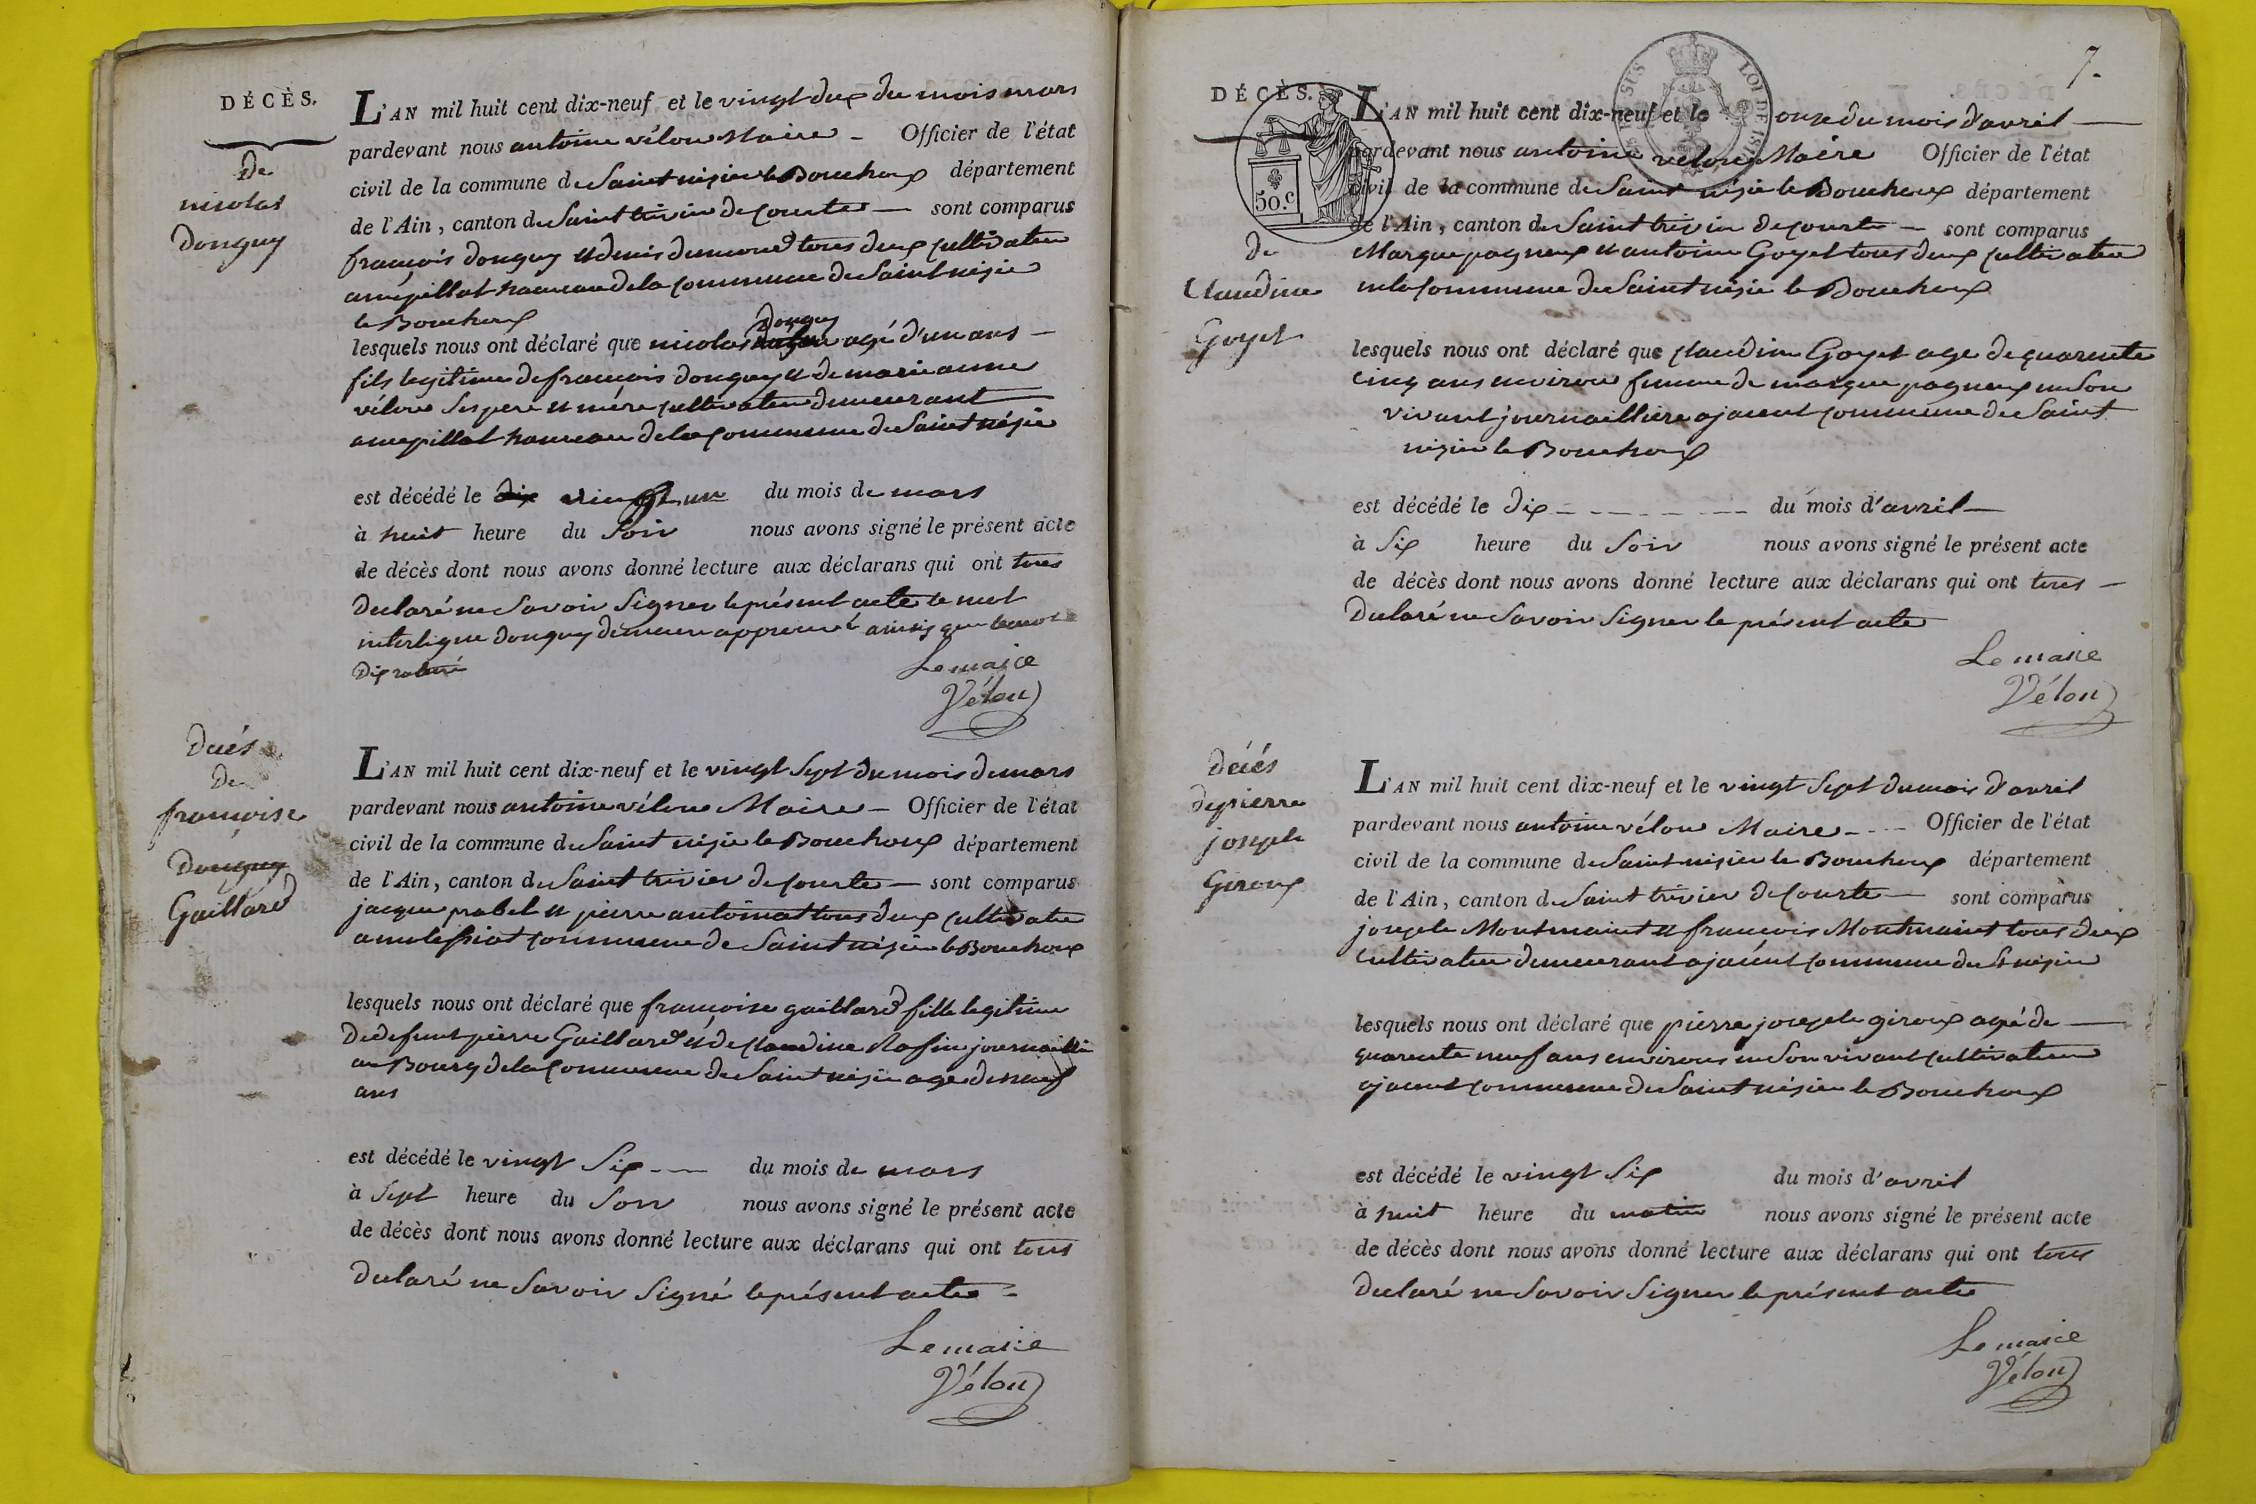 DÉCÈS.
de
nicolas
Donguy
L'AN mil huit cent dix-neuf et le vingt deux du mois mars
pardevant nous antoine vélon Maire - Officier de l'état
civil de la commune de Saint nizier le Bouchoux département
de l'Ain, canton de Saint trivier de Courte — sont comparus
françois donguy et denis dumond tous deux cultivateur
amépillat hameau de la commune de Saint nizier
le Bouchoux
lesquels nous ont déclaré que nicolas donguy agé d'un ans —
fils legitime de françois donguy et de marie anne
vélon Ses pere et mére cultivateur demeurant
amepillat hameau de la commune de Saint nézie
est décédé le dix vingt un du mois de mars
à huit heure du Soir nous avons signé le présent acte
de décès dont nous avons donné lecture aux déclarans qui ont tous
declaré ne Savoir Signer le présent acte le mot
interligne donguy demeure approuvé ainsis que le mot
Dix raturé
Le maire
Vélon
Decés
De
françoise
Donguy
Gaillard
L'AN mil huit cent dix-neuf et le vingt Sept du mois de mars
pardevant nous antoine vélon Maire - Officier de l'état
civil de la commune de Saint nizie le Bouchoux département
de l'Ain, canton de Saint trivier de Courte — sont comparus
jacque prabel et pierre antoinat tous deux cultivateur
commune de Saint nizier le Bouchoux
lesquels nous ont déclaré que françoise gaillard fille legitime
De defeunt pierre Gaillard et de Claudine journailli
au Bourg de la Commune de Saint nizie age de neuf
ans
est décédé le vingt Six - — du mois de mars
à Sept heure du Soir nous avons signé le présent acte
de décès dont nous avons donné lecture aux déclarans qui ont tous
declaré ne Savoir Signé le présent acte =
Le maire
Vélon
7.
DÉCÈS.
50.C
LOI DE
de
Claudine
Goyet
L'AN mil huit cent dix-neuf et le onze du mois d'avril —
pardevant nous antoine vélon Maire Officier de l'état
civil de la commune de Saint nizie le Bouchoux département
de l'Ain, canton de Saint trivier de Courte — sont comparus
Marque pagneux et antoine Goyet tous deux cultivateur
en la commune de Saint nizie le Bouchoux
lesquels nous ont déclaré que claudine Goyet age de quarente
cinq ans environ femme de marque pagneux en Son
vivant journailliere ajacent commune de Saint
nizier le Bouchoux
est décédé le dix - - - - - - — du mois d'avril —
à Six heure du Soir nous avons signé le présent acte
de décès dont nous avons donné lecture aux déclarans qui ont tous —
Declaré ne Savoir Signer le présent acte
Le maire
Vélon
décés
de pierre
joseple
Giroux
L'AN mil huit cent dix-neuf et le vingt Sept du mois d'avril
pardevant nous antoine vélon Maire - - - Officier de l'état
civil de la commune de Saint nizier le Bouchoux département
de l'Ain, canton de Saint trivier de Courte — sont comparus
joseple Montmaint et françois Montmaint tous deux
cultivateur demeurant ajacent commune de St nizier
lesquels nous ont déclaré que pierre joseple giroux agé de —
quarente neuf ans environs en Son vivant cultivateur
ajacent commune de Saint nizier le Bouchoux
est décédé le vingt Six du mois d'avril
à huit heure du matin nous avons signé le présent acte
de décès dont nous avons donné lecture aux déclarans qui ont tous
Declaré ne Savoir Signer le présent acte
Le maire
Vélon